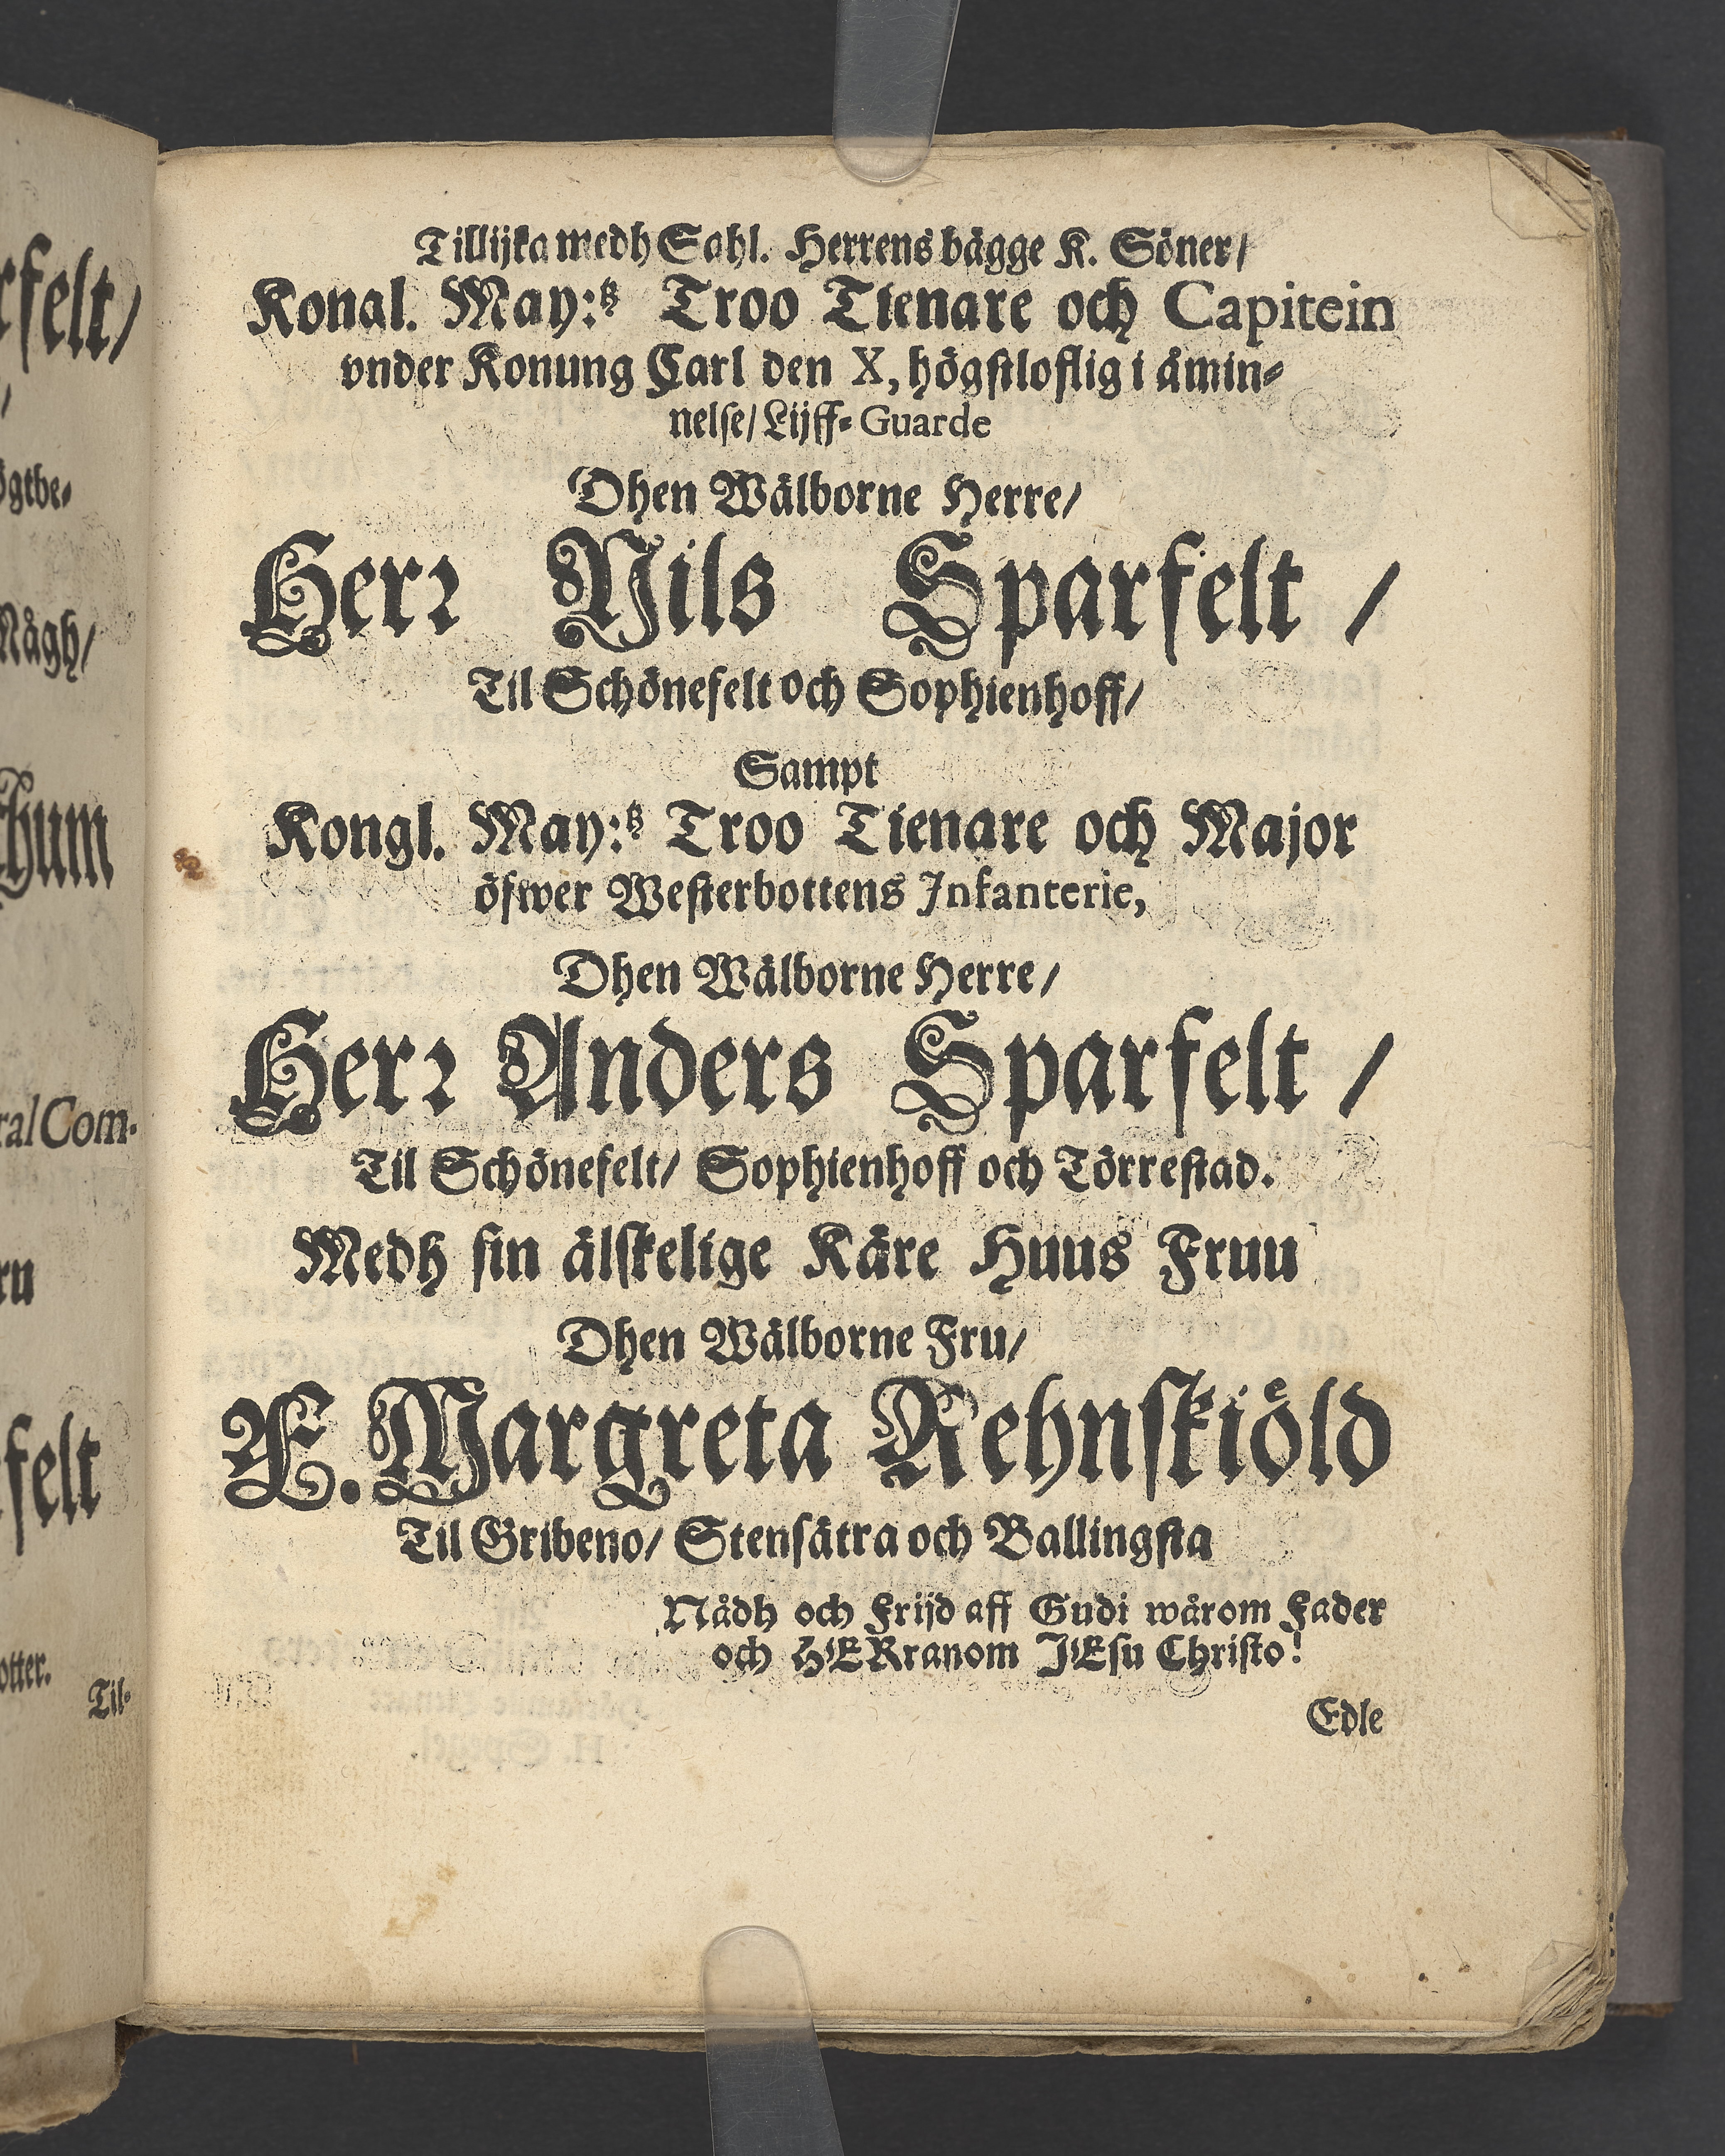 Tillijka medh Sahl. Herrens bägge K. Söner/
Konal. May:tz Troo Tienare och Capitein
vnder Konung Carl den X, högstloflig i åmin-
nelse/ Lijff-Guarde
Dhen Wälborne Herre/
Herr Nils Sparfelt /
Til Schönefelt och Sophienhoff/
Sampt
Kongl. May:tz Troo Tienare och Major
öfwer Westerbottens Infanterie,
Dhen Wälborne Herre/
Herr Anders Sparfelt /
Til Schönefelt/ Sophienhoff och Törrestad.
Medh sin älskelige Käre Huus Fruu
Dhen Wälborne Fru/
F. Margreta Rehnskiöld
Til Gribeno/ Stensätra och Ballingsta
Nådh och Frijd aff Gudi wårom Fader
och HERranom JEsu Christo!
Edle
felt/
ögtbe-
Någh/
thum
ral Com-
felt
otter.
Til-